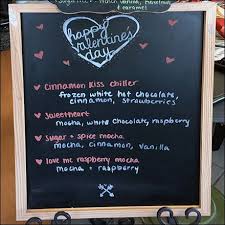 vanilla, hazelnut
& caramel
happy
valentine's
day
cinnamon kiss chiller
frozen white hot chocolate,
cinnamon, strawberries
sweetheart
mocha, white chocolate, raspberry
sugar + spice mocha
mocha, cinnamon, vanilla
love me raspberry mocha
mocha + raspberry